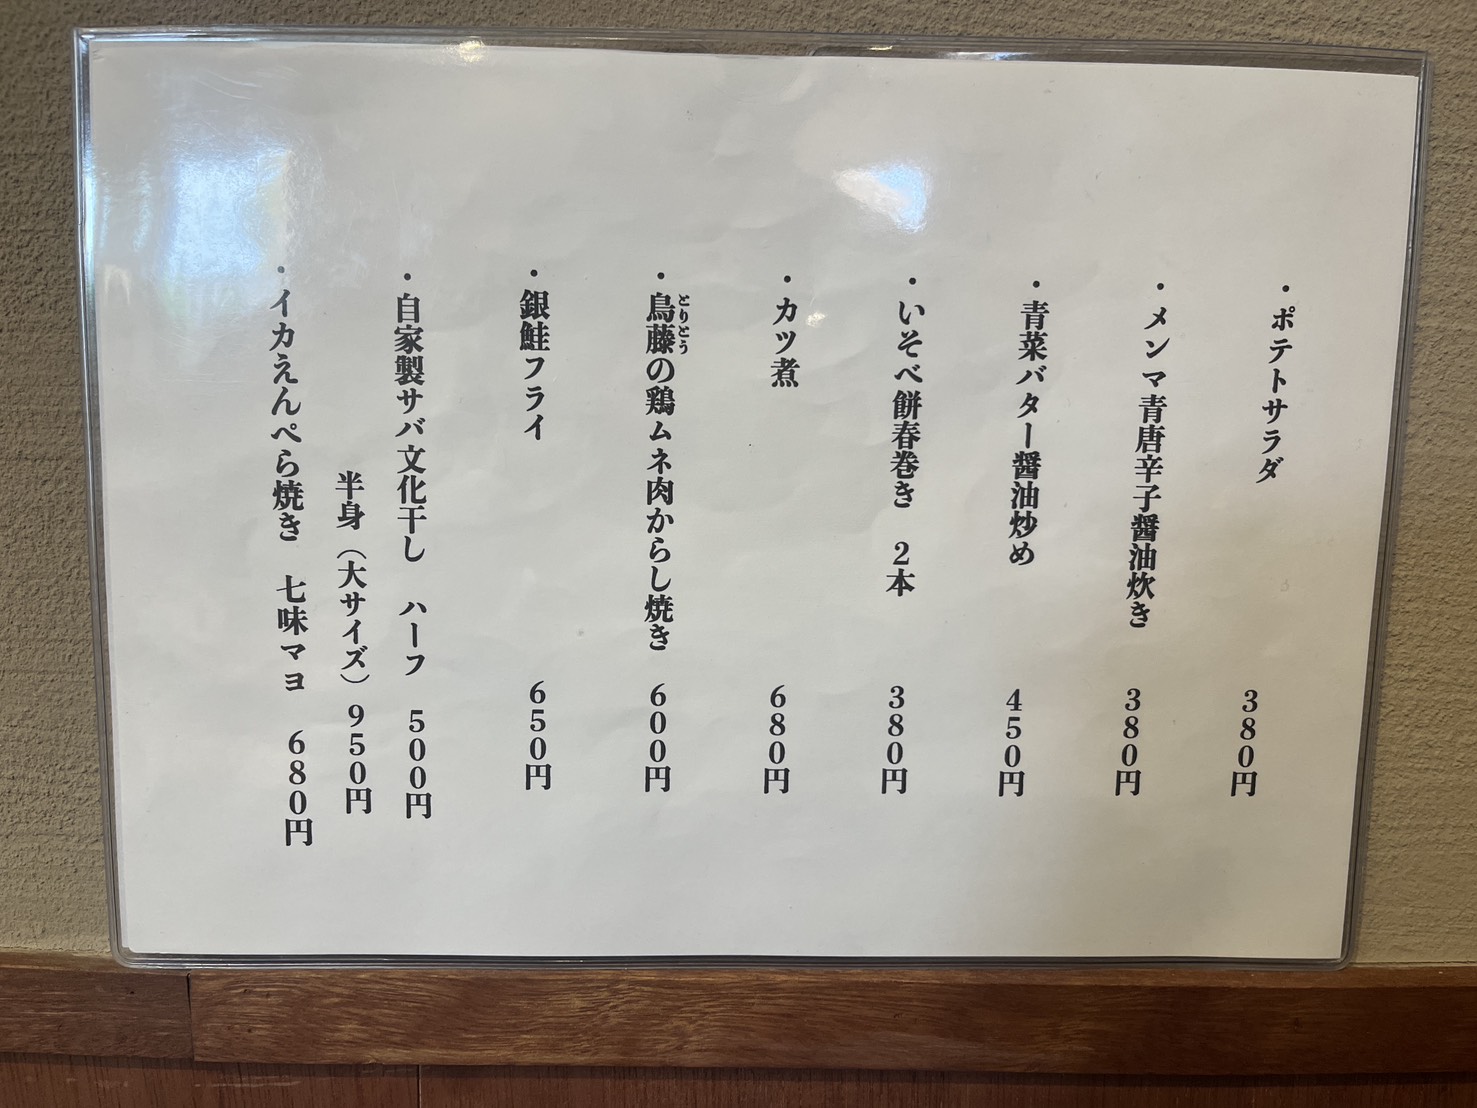 ・ポテトサラダ　380円
・メンマ青唐辛子醤油炊き　380円
・青菜バター醤油炒め　450円
・いそべ餅春巻き　2本　380円
・カツ煮　680円
・鳥藤の鶏ムネ肉からし焼き　600円
とりとう
・銀鮭フライ　650円
・自家製サバ文化干し　ハーフ　500円
半身（大サイズ）950円
・イカえんぺら焼き　七味マヨ　680円